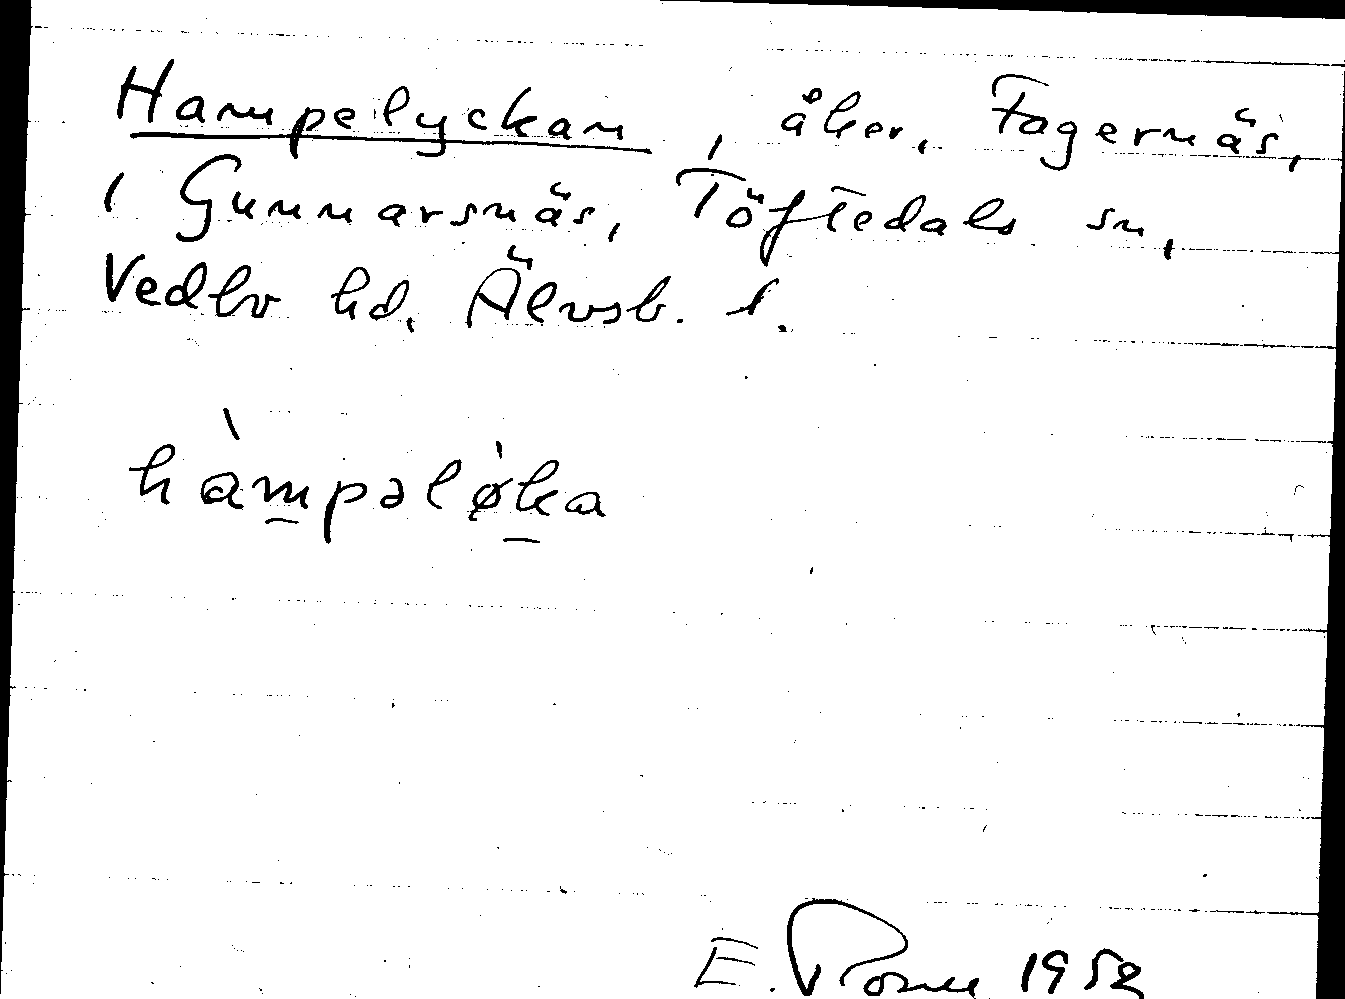 Hampelyckan, åker, Fagernäs,
1 Gunnarsnäs, Töftedals sn,
Vedbo hd. Älvsb. l.
hàmpəlø̀ka
E. 1952